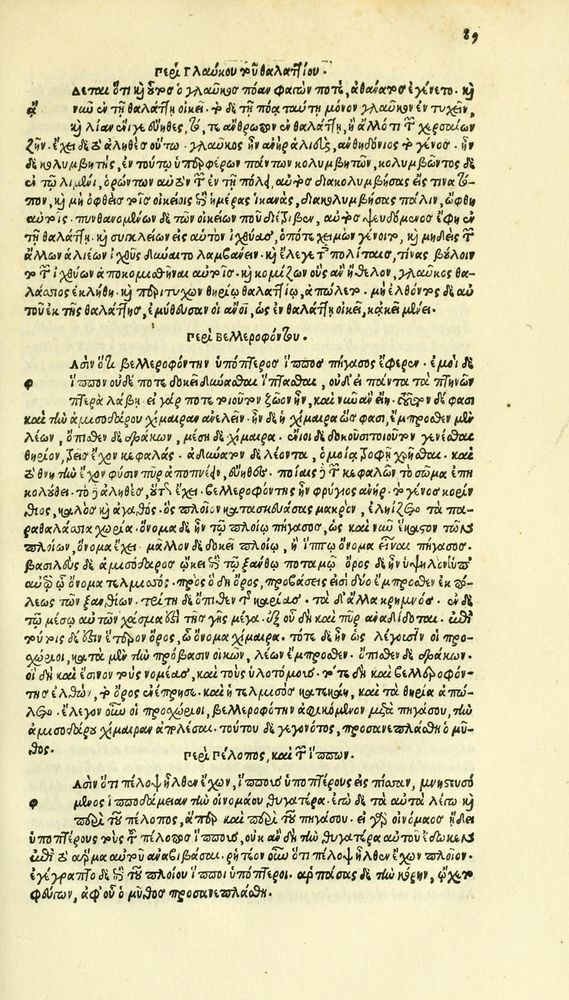 89
Περὶ Γλαύκου τοῦ θαλαττίου.
Δεται ὅτι καὶ οὗτος ὁ γλαῦκος πόαν φαγών ποτε, ἀθάνατος ἐγένετο. καὶ
α νῦν ἐν τῇ θαλάττῃ οἰκεῖ. τὸ δὲ τῇ πόᾳ ταύτῃ μόνον γλαῦκον ἐντυχεῖν,
καὶ λίαν εὔηθες, τό, τε ἄνθρωπον ἐν θαλάττῃ, ἢ ἄλλό τι τῶν χερσαίων
ζῆν. ἔχει δὲ τὸ ἀληθὲς οὕτω. γλαῦκος ἦν ἀνὴρ ἁλιεὺς, ἀνθηδόνιος τὸ γένος. ἦν
δὲ κολυμβητὴς, ἐν τούτῳ ὑπερφέρων πάντων κολυμβητῶν, κολυμβῶντος δὲ
ἐν τῷ λιμένι, ὁρώντων αὐτὸν τῶν ἐν τῇ πόλει, αὐτὸς διακολυμβήσας εἴς τινα τό-
πον, καὶ μὴ ὀφθεὶς τοῖς οἰκείοις ἐπὶ ἡμέρας ἱκανὰς, διακολυμβήσας πάλιν, ὤφθη
αὐτοῖς. πυνθανομένων δὲ τῶν οἰκείων ποῦ διέτριβεν, αὐτὸς ψευδόμενος ἔφη ἐν
τῇ θαλάττῃ. καὶ συγκλείων εἰς αὑτὸν ἰχθύας, ὁπότε χειμὼν γένοιτο, καὶ μηδεὶς τῶν
ἄλλων ἁλιέων ἰχθῦς δύναιτο λαμβάνειν. καὶ ἔλεγε τοῖς πολίταις, τίνας βούλοιν
το τῶν ἰχθύων ἀποκομισθῆναι αὐτοῖς. καὶ κομίζων οὓς ἂν ἤθελον, γλαῦκος θα-
λάσσιος ἐκλήθη. καὶ περιτυχὼν θηρίῳ θαλαττίῳ, ἀπώλετο. μὴ ἐλθόντος δὲ αὐ
τοῦ ἐκ τῆς θαλάττης, ἐμύθευσαν οἱ ἄνθρωποι, ὡς ἐν θαλάττῃ οἰκεῖ, κἀκεῖ μένει.
Περὶ Βελλεροφόντου.
Ασὶν ὅτι βελλεροφόντην ὑπόπτερος ἵππος πήγασος ἔφερεν. ἐμοὶ δὲ
φ ἵππον οὐδέ ποτε δοκεῖ δύνασθαι ἵπτασθαι, οὐδ' εἰ πάντα τὰ πτηνῶν
πτερὰ λάβῃ. εἰ γάρ ποτε τοιοῦτον ζῶον ἦν, καὶ νῦν ἂν εἴη. τοῦτον δέ φασι
καὶ τὴν ἀμισοδάρου χίμαιραν ἀνελεῖν. ἦν δὲ ἡ χίμαιρα ὥς φασι, ἔμπροσθεν μὲν
λέων, ὄπισθεν δὲ δράκων, μέση δὲ χίμαιρα. ἔνιοι δὲ δοκοῦσι τοιοῦτον γενέσθαι
θηρίον, τρεῖς ἔχον κεφαλάς. ἀδύνατον δὲ λέοντα, ὁμοίᾳ τροφῇ χρῆσθαι. καὶ
τὸ θνητὴν ἔχον φύσιν πῦρ ἀποπνέειν, εὔηθες. ποίαις δὲ τῶν κεφαλῶν τὸ σῶμα ἐπη
κολούθει. τὸ δὲ ἀληθὲς, οὕτως ἔχει. βελλεροφόντης ἦν φρύγιος ἀνὴρ. τὸ γένος κορίν
θιος, καλὸς καὶ ἀγαθός. ὃς πλοῖον κατασκευάσας μακρὸν, ἐληΐζετο τὰ πα-
ραθαλάσσια χωρία. ὄνομα δὲ ἦν τῷ πλοίῳ πήγασος, ὡς καὶ νῦν ἕκαστον τῶν
πλοίων, ὄνομα ἔχει. μᾶλλον δὲ δοκεῖ πλοίῳ, ἢ ἵππῳ ὄνομα εἶναι πήγασος.
βασιλεὺς δὲ ἀμισόδαρος ᾤκει ἐπὶ τῷ ξάνθῳ ποταμῷ ὄρος δὲ ἦν ὑψηλὸν ὑπ'
αὐτῷ ᾧ ὄνομα τελμισσός. πρὸς ὃ δὴ ὄρος, προσβάσεις εἰσὶ δύο ἔμπροσθεν ἐκ πό-
λεως τῶν ξανθίων. τρίτη δὲ ὄπισθεν τῆς καρίας. τὰ δ' ἄλλα κρημνός. ἐν δὲ
τῷ μέσῳ αὐτῶν χάσμα ἐστὶ τῆς γῆς μέγα. ἐξ οὗ δὴ καὶ πῦρ ἀναδίδοται. ἐπὶ
τούτοις δέ ἐστιν ἕτερον ὄρος, ᾧ ὄνομα χίμαιρα. τότε δὲ ἦν ὡς λέγουσιν οἱ προ-
σχώριοι, κατὰ μὲν τὴν πρόσβασιν οἰκῶν, λέων ἔμπροσθεν. ὄπισθεν δὲ δράκων.
οἳ δὴ καὶ ἐσίνοντο τοὺς νομέας, καὶ τοὺς ὑλοτόμους. τότε δὴ καὶ βελλεροφόν-
της ἐλθὼν, τὸ ὄρος ἐνέπρησε. καὶ ἡ τελμισσὸς κατεκάη, καὶ τὰ θηρία ἀπώ-
λετο. ἔλεγον οὖν οἱ προσχώριοι, βελλεροφόντην ἀφικόμενον μετὰ πηγάσου, τὴν
ἀμισοδάρου χίμαιραν ἀπολέσαι. τούτου δὲ γεγονότος, προσανεπλάσθη ὁ μῦ-
θος.
Περὶ Πέλοπος, καὶ τῶν ἵππων.
Ασὶν ὅτι πέλοψ ἦλθεν ἔχων, ἵππους ὑποπτέρους εἰς πίσαν, μνηστευσό
φ μενος ἱπποδάμειαν τὴν οἰνομάου θυγατέρα. ἐγὼ δὲ τὰ αὐτὰ λέγω καὶ
περὶ τοῦ πέλοπος, ἅπερ καὶ περὶ τοῦ πηγάσου. εἰ γὰρ οἰνόμαος ᾔδει
ὑποπτέρους τοὺς τοῦ πέλοπος ἵππους, οὐκ ἂν δὴ τὴν θυγατέρα αὐτοῦ ἔδωκεν
ἐπὶ τὸ ἅρμα αὐτοῦ ἀναβιβάσαι. ῥητέον οὖν ὅτι πέλοψ ἦλθεν ἔχων πλοῖον.
ἐγέγραπτο δὲ ἐπὶ τοῦ πλοίου ἵπποι ὑπόπτεροι. ἁρπάσας δὲ τὴν κόρην, ᾤχετο
φεύγων, ἀφ' οὗ ὁ μῦθος προσανεπλάσθη.